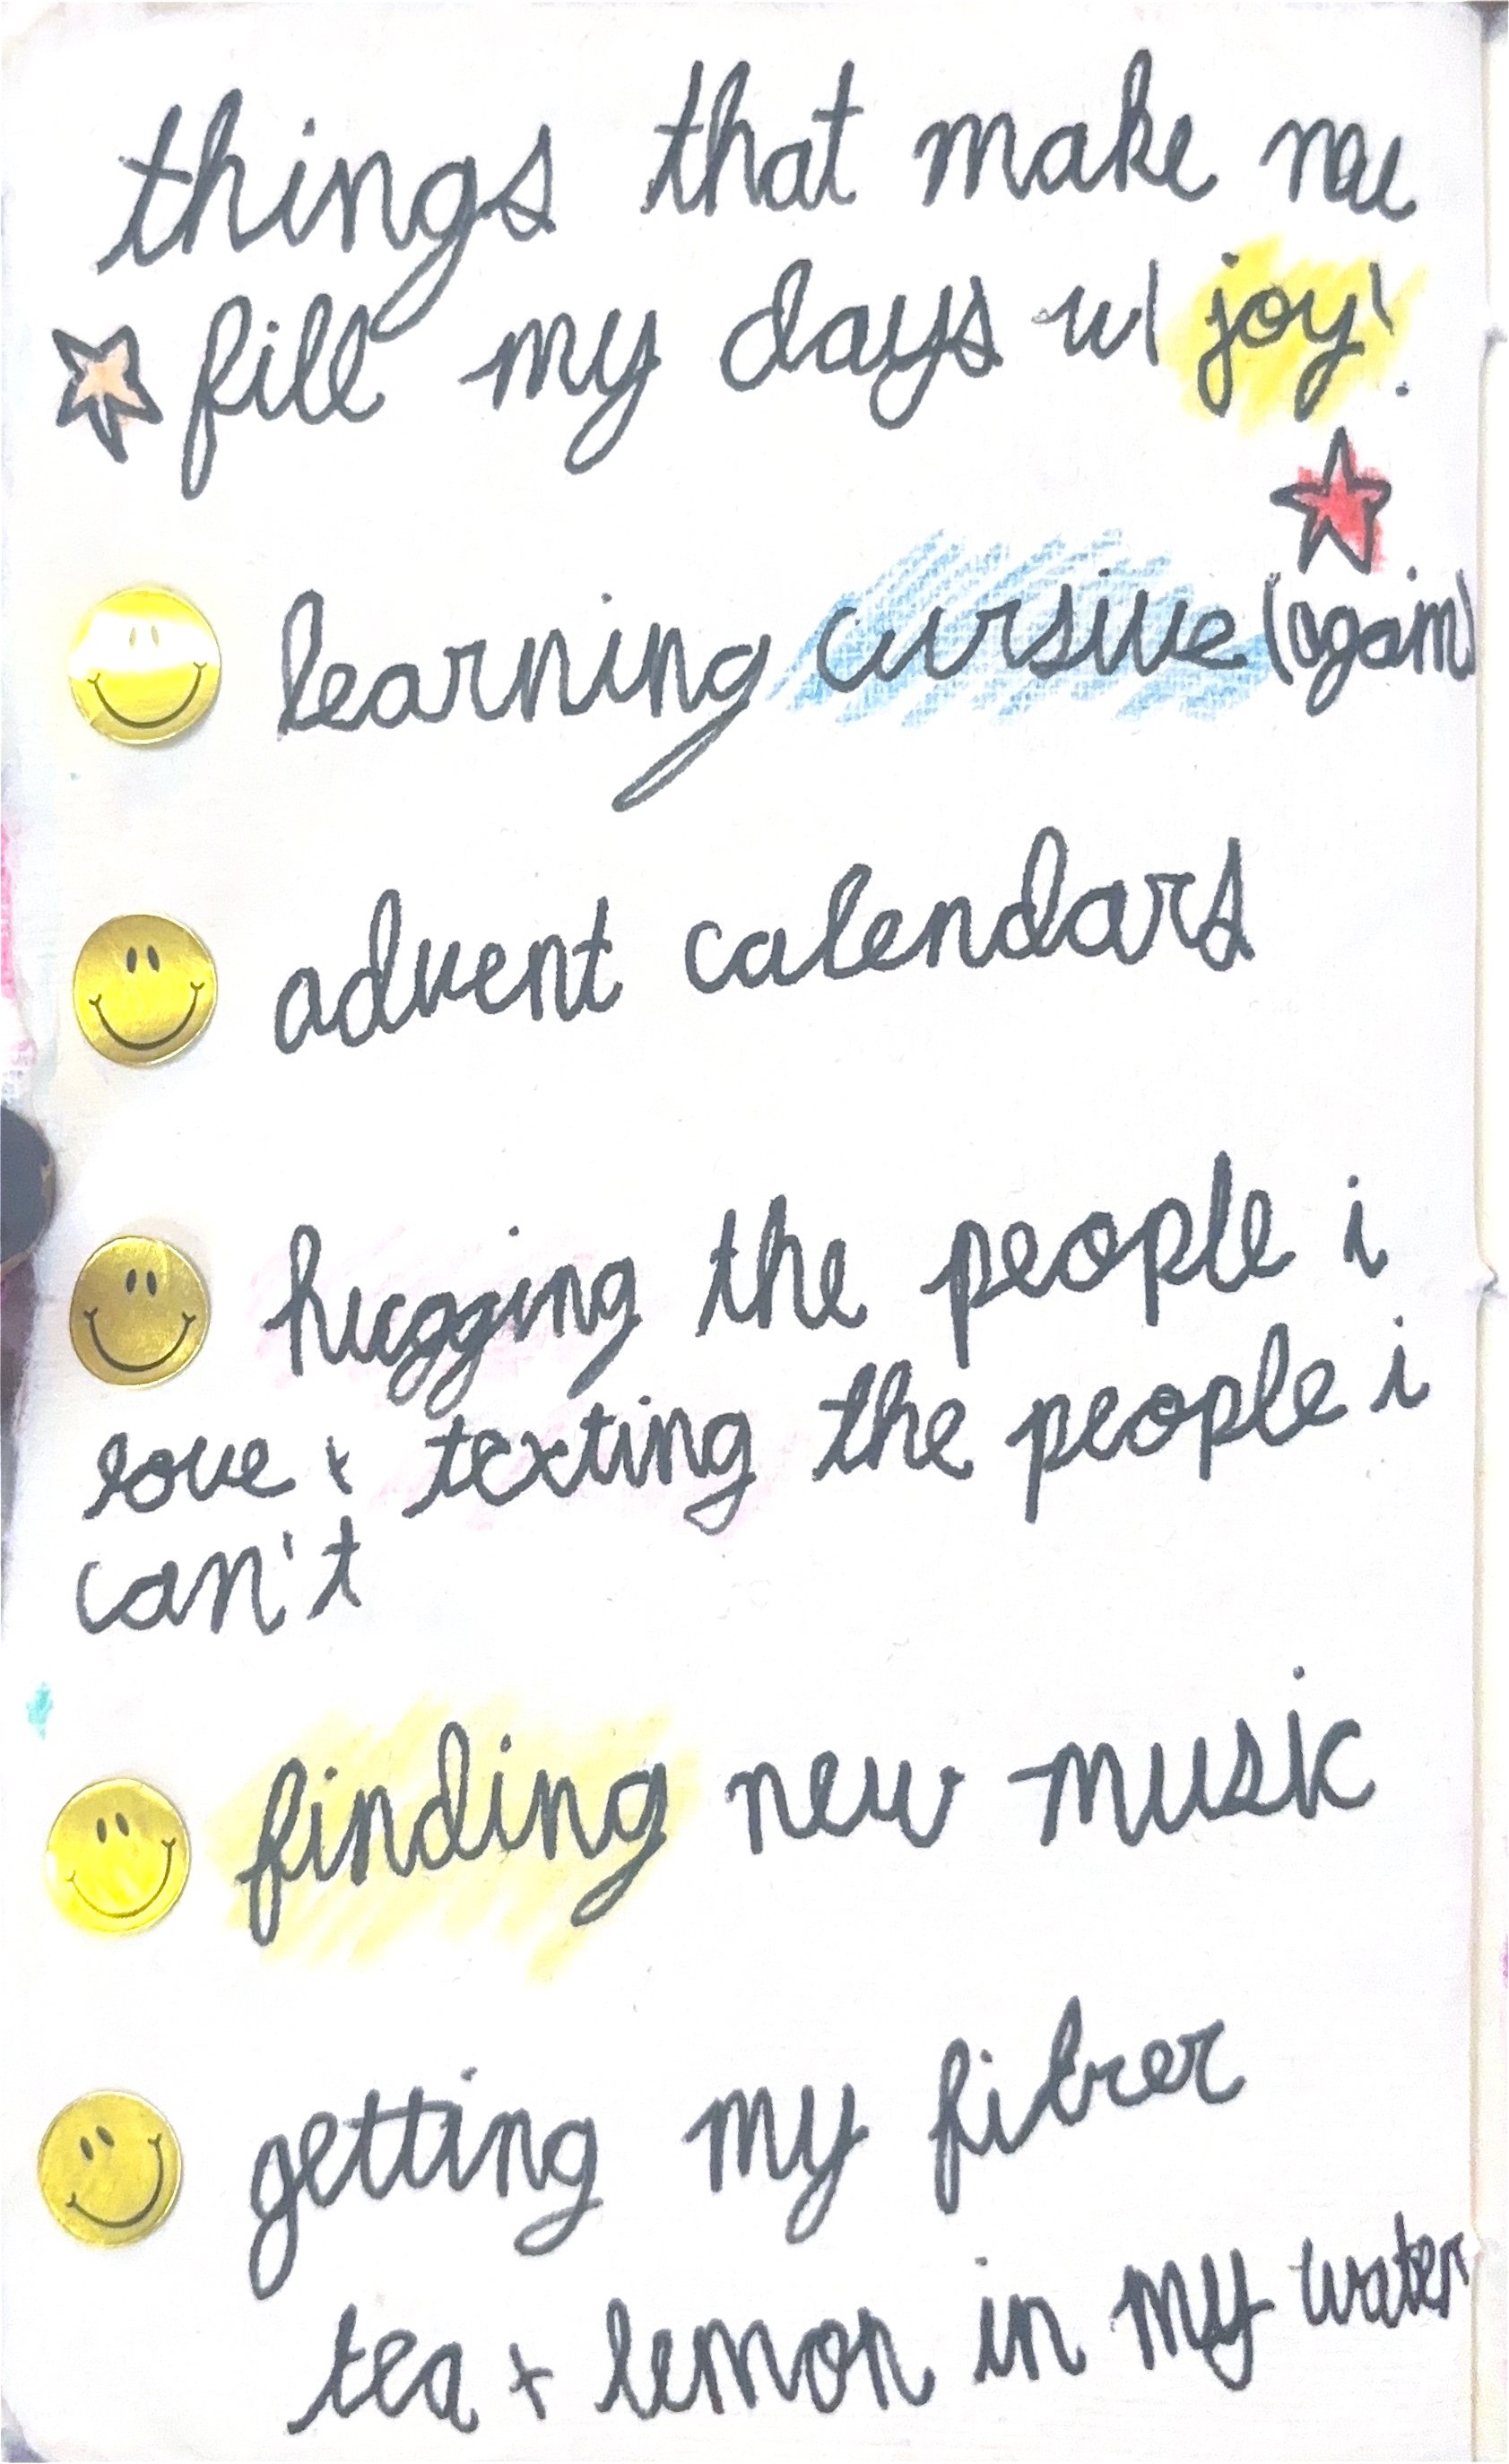 things that make me
fill my days w/ joy!
learning cursive (again)
advent calendars
hugging the people i
love + texting the people i
can't
finding new music
getting my fibrer
tea + lemon in my water